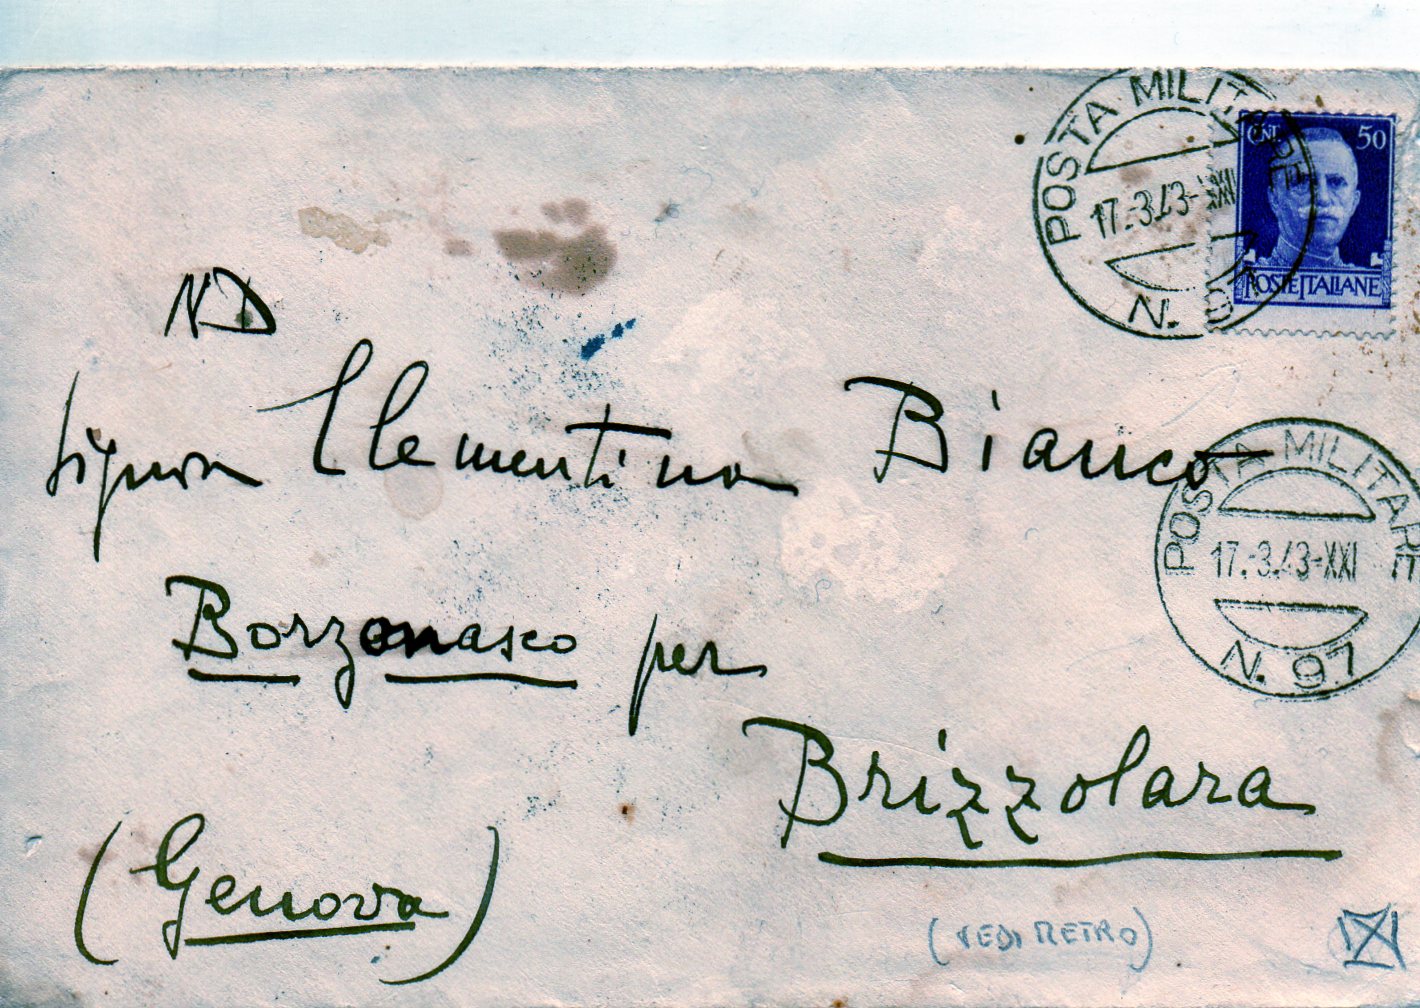 POSTA MILITARE
17.3.43-XXI
N. 97
CENT 50
POSTE ITALIANE
ND
Signora Clementina Bianco
POSTA MILITARE
17.3.43-XXI
N. 97
Borzonasco per
Brizzolara
(Genova)
(VEDI RETRO)